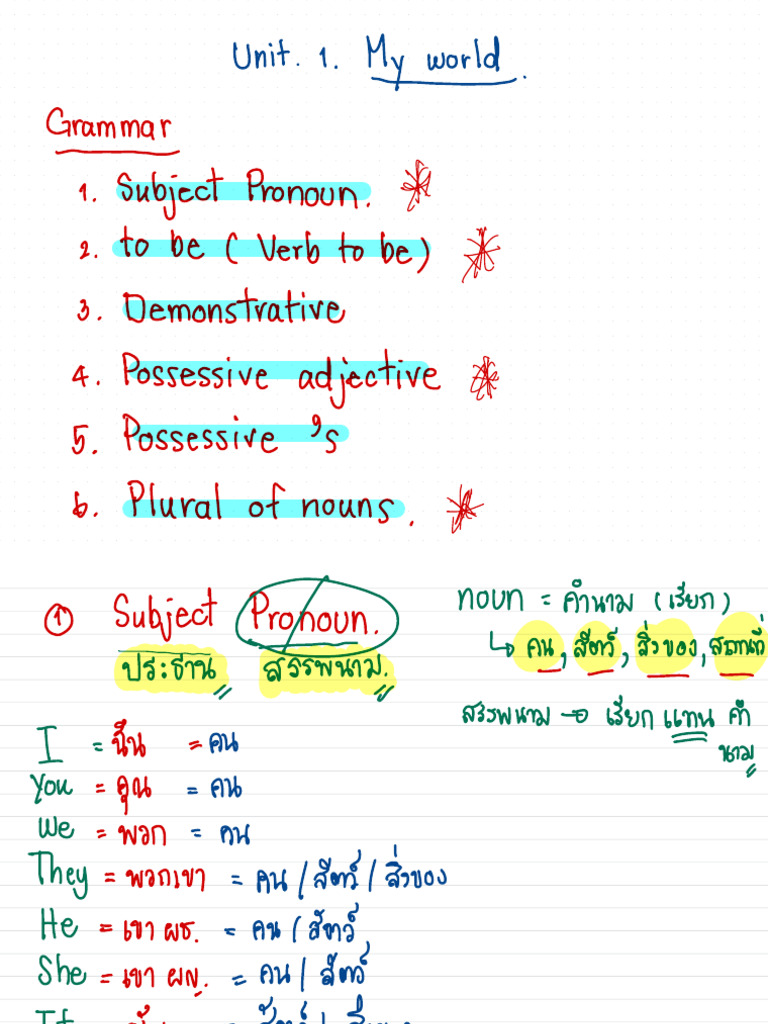 Unit. 1. My world.
Grammar
1. Subject Pronoun.
2. to be ( Verb to be )
3. Demonstrative
4. Possessive adjective
5. Possessive 's
6. Plural of nouns.
① Subject Pronoun.
ประธาน สรรพนาม.
noun = คำนาม (เรียก)
↳ คน, สัตว์, สิ่งของ, สถานที่
สรรพนาม → เรียก แทน คำ
นาม
I = ฉัน = คน
You = คุณ = คน
We = พวก = คน
They = พวกเขา = คน / สัตว์ / สิ่งของ
He = เขา ผช. = คน / สัตว์
She = เขา ผญ. = คน / สัตว์
It